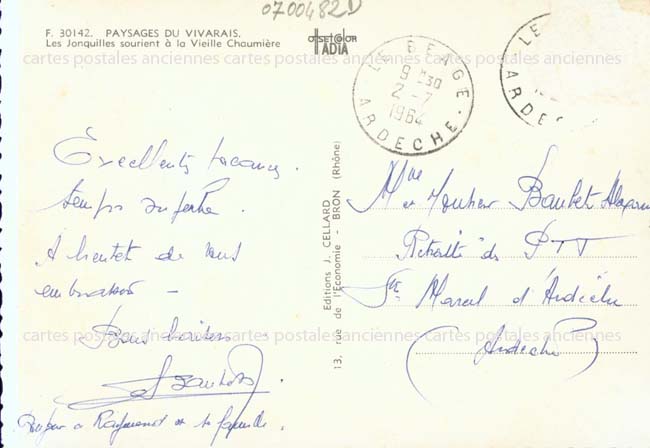 0700482D
F. 30142. PAYSAGES DU VIVARAIS.
Les Jonquilles sourient à la Vieille Chaumière
offset color
ADIA
LE BEAGE
9 H 30
2-7
1964
ARDECHE.
LE
ARDECHE
cartes postales anciennes cartes postales anciennes cartes postales anciennes
Excellentes vacances.
temps superbe.
A bientôt de vous
embrasser –
Bons baisers
Raymond et sa famille.
Editions J. CELLARD
13, rue de l'Economie - BRON (Rhône)
Mme et Monsieur Baubet
Retraité des PTT
St Marcel d'Ardèche
(Ardèche)
cartes postales anciennes cartes postales anciennes cartes postales anciennes